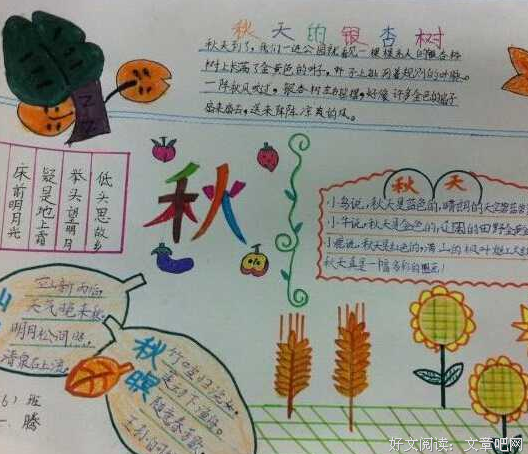 秋天的银杏树
秋天到了，我们一进公园就看见一棵棵高大的银杏树
树上长满了金黄色的叶子，叶子上排列着规则的叶脉。
一阵秋风吹过，银杏树左右摇摆，好像许多金色的扇子
扇来扇去，送来阵阵凉爽的风。
床前明月光
疑是地上霜
举头望明月
低头思故乡
秋
秋天
小鸟说，秋天是蓝色的，晴朗的天空
小牛说，秋天是金色的，辽阔的田野金
小鹿说，秋天是红色的，满山的枫叶
秋天真是一幅多彩的画
山
空山新雨后
天气晚来秋
明月松间照
清泉石上流
秋暝
竹喧归浣女
莲动下渔舟
随意春芳歇
王孙自
6）班
腾
好文阅读：文章吧网